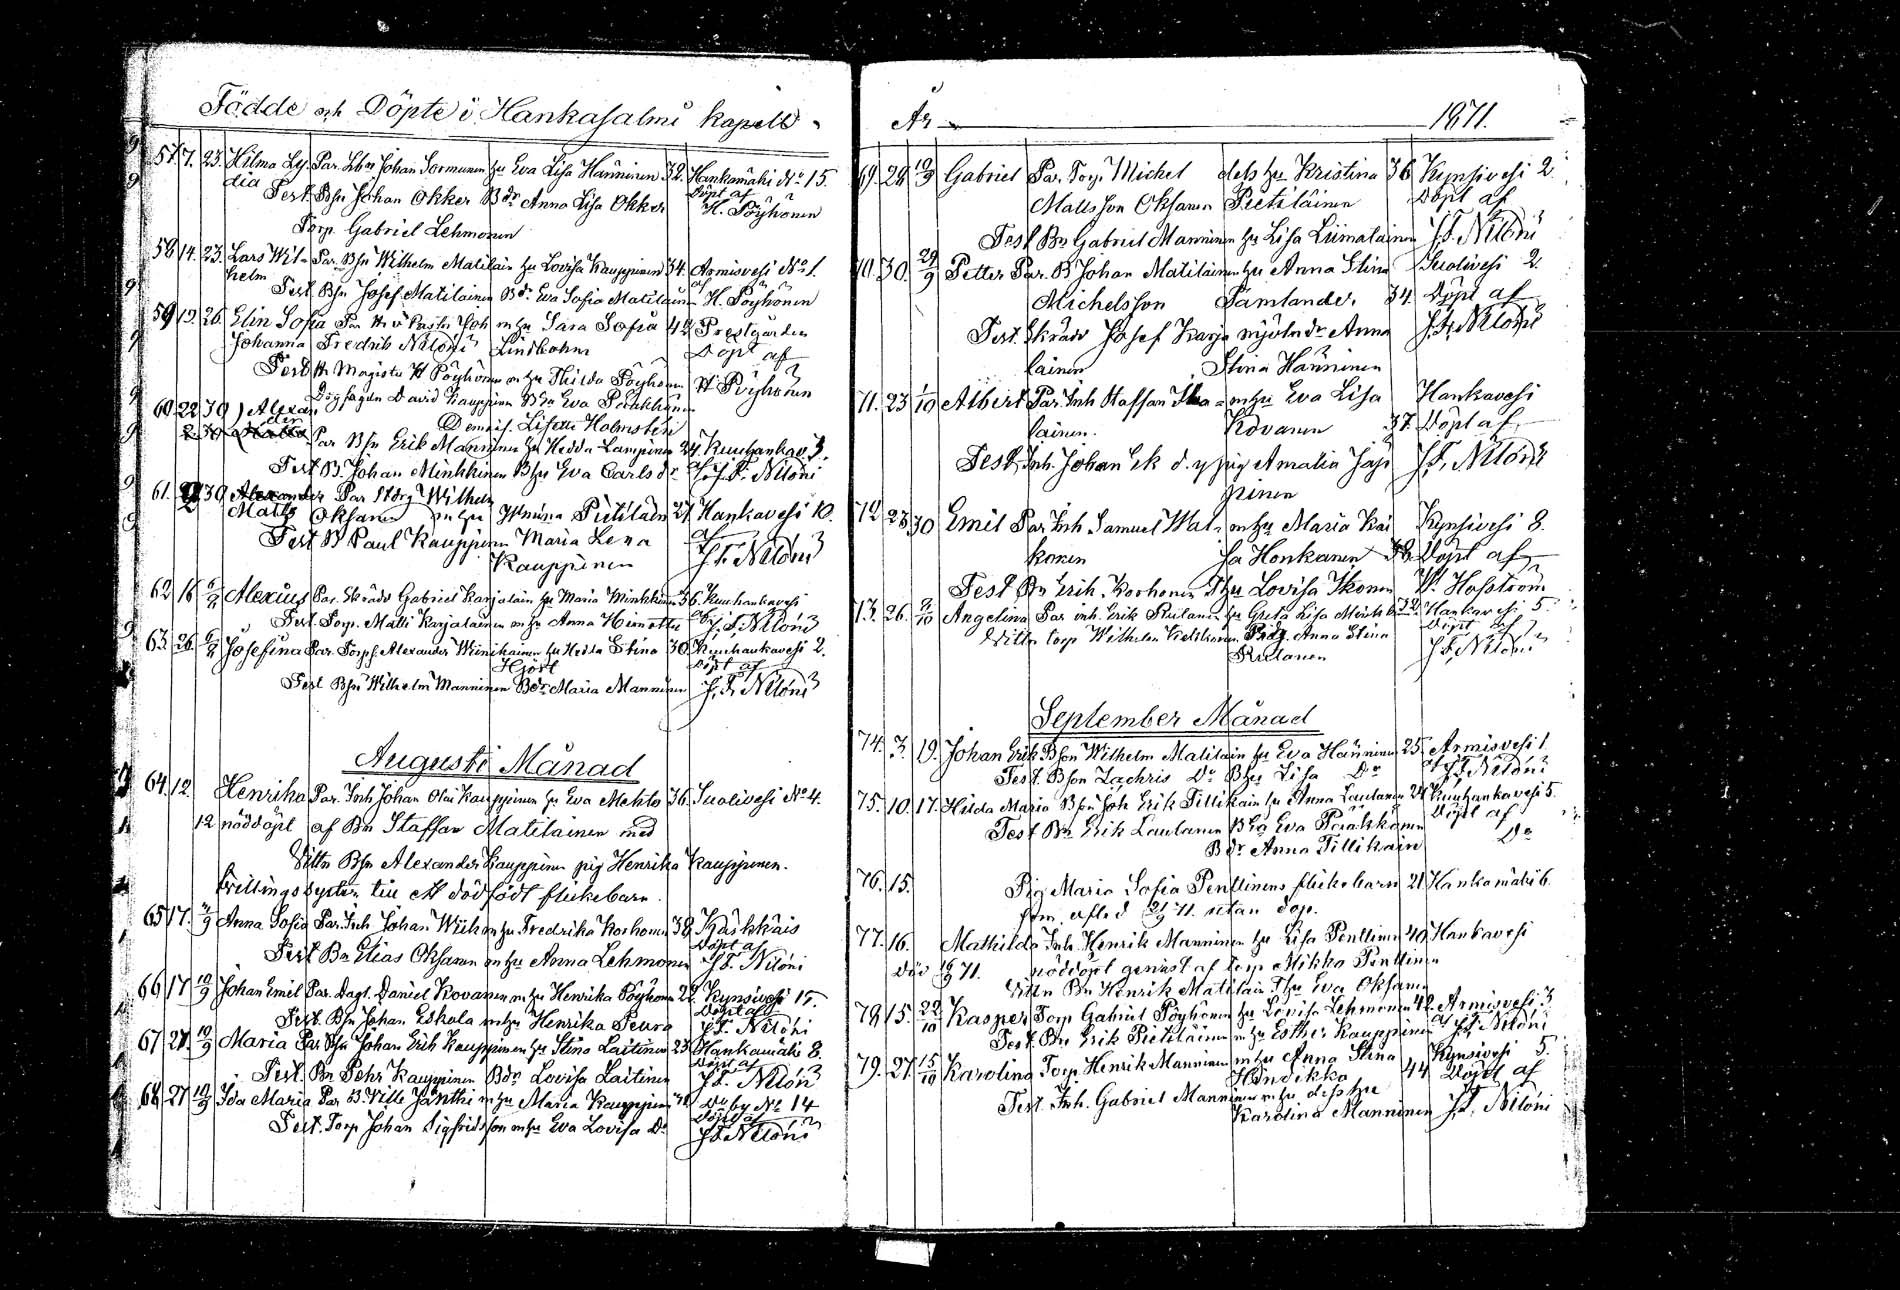 Födde och Döpte i Hankasalmi kapell
57. 7. 23. Hilma Ly- Par. Lbr Johan Sormunen hu Eva Lisa Hänninen 32. Hankamäki No 15.
dia Test. Bsn Johan Okker Bdr Anna Lisa Okker Döpt af H. Pöyhönen
Torp Gabriel Lehmonen
58 14. 23. Lars Wil- Par. Bsn Wilhelm Matilain hu Lovisa Kauppinen 34. Armisvesi No 1.
helm Test. Bsn Josef Matilainen Bdr Eva Sofia Matilainen af H. Pöyhönen
59 19. 26. Elin Sofia Par Joh m hu Sara Sofia Prestgården
Johanna Fredrik Niloni Lindbohm Döpt af
Test H Magister H Pöyhönen m hu Thilda Pöyhönen H Pöyhönen
David Kauppinen Eva Päräkkönen
60. 22 30 Alexan
der Demois. Lisette Holmsten
Par Bsn Erik Manninen hu Hedda Lampinen 24. Kuuhankav. 3.
Test B Johan Minkkinen Bhu Eva Carlsdr af J. F. Niloni
61. 30 Alexander Par Wilhelm
Matts Oksanen m hu Pietiläin 27. Hankavesi 10.
Test B Paul Kauppinen Maria Lena af
Kauppinen J. F. Niloni
62 16 6/8 Alexius Par. Skrädd Gabriel Karjalain hu Maria Minkkinen 36. Kuuhankavesi
Test. Torp. Matti Karjalainen m hu Anna af J. F. Niloni
63. 26. 6/8 Josefina Par. Torp Alexander Weinikainen hu Hedda Stina 30. Kuuhankavesi 2.
Hjort Döpt af
Test Bsn Wilhelm Manninen Bdr Maria Manninen J. F. Niloni
Augusti Månad
64. 12. Henrika Par. Inh Johan Olai Kauppinen hu Eva Mehto 36. Suolivesi No 4.
12 nöddöpt af Bn Staffan Matilainen med
Vittn Bsn Alexander Kauppinen pig Henrika Kauppinen.
tvillingssyster till ett dödfödt flickebarn.
65 17. /9 Anna Sofia Par. Inh Johan Wiih m hu Fredrika Korhonen 38. Käkkäis
Döpt af
Test Bn Elias Oksanen m hu Anna Lehmonen J. F. Niloni
66 17 10/9 Johan Emil Par. Dagl. Daniel Kovanen m hu Henrika Pöyhönen 22. Kynsivesi 15.
Döpt af
Test. Bsn Johan Eskola m hu Henrika Peura J. F. Niloni
67 27. 10/9 Maria Par Bsn Johan Erik Kauppinen hu Stina Laitinen 23. Hankamäki 8.
Döpt af
Test. Bn Pehr Kauppinen Bdr Lovisa Laitinen J. F. Niloni
68 27 10/9 Ida Maria Par B Ville Jänthi m hu Maria Kauppinen No 14
Döpt af
Test. Torp Johan Sigfridsson m hu Eva Lovisa Do J. F. Niloni
År 1871.
69. 28 10/9 Gabriel Par. Torp. Michel dess hu Kristina 36 Kynsivesi 2.
Mattsson Oksanen Pietiläinen Döpt af
Test Bn Gabriel Manninen hu Lisa Liimatainen J. F. Niloni
70. 30. 29/9 Petter Par. B Johan Matilainen hu Anna Stina Suolivesi 2.
Michelsson Samlander. 34. Döpt af
Test. Skrädd Josef Karja Anna J. F. Niloni
lainen Stina Hänninen
71. 23 1/10 Albert Par. Inh Staffan m hu Eva Lisa Hankavesi
lainen. Kovanen 37. Döpt af
Test. Inh. Johan Ek d. y pig Amalia Jäp J. F. Niloni
pinen
72 23 30 Emil Par. Inh Samuel Wal- m hu Maria Kai Kynsivesi 8.
konen sa Honkanen Döpt af
Test Bn Erik Korhonen hu Lovisa Ikonen W. Hofström
73. 26. /10 Angelina Par inh. Erik Rutanen hu Greta Lisa 32. Hankavesi 5.
Döpt af
Vittn torp Wilhelm Anna Stina
Rutanen J. F. Niloni
September Månad
74. 3. 19. Johan Erik Bson Wilhelm Matilain hu Eva Hänninen 25. Armisvesi 1
Test. Bson Zachris Do Bhu Lisa Do af J. F. Niloni
75. 10. 17. Hilda Maria Bsn Joh Erik Tillikain hu Anna Lautanen 24 Kuuhankavesi 5.
Döpt af
Test Bn Erik Lautanen Eva Päräkkönen
Bdr Anna Tillikain Do
76. 15. Pig Maria Sofia Penttinens flickebarn 21 Hankamäki 6.
som afled 71. utan dop.
77. 16. Mathilda Inh. Henrik Manninen hu Lisa Penttinen 40 Hankavesi
Död 16/9 71. nöddöpt genast af torp Mikko Penttinen
Vittn Bn Henrik Matilain hu Eva Oksanen
78 15. 22/10 Kasper Torp Gabriel Pöyhönen hu Lovisa Lehmonen 42. Armisvesi 3
Test. Bn Erik Pietiläinen m hu Esther Kauppinen af J. F. Niloni
79. 27. 15/10 Karolina Torp. Henrik Manninen m hu Anna Stina Kynsivesi 5.
Hindikka 44 Döpt af
Test. Inh. Gabriel Manninen m hu dess hu
Karolina Manninen J. F. Niloni